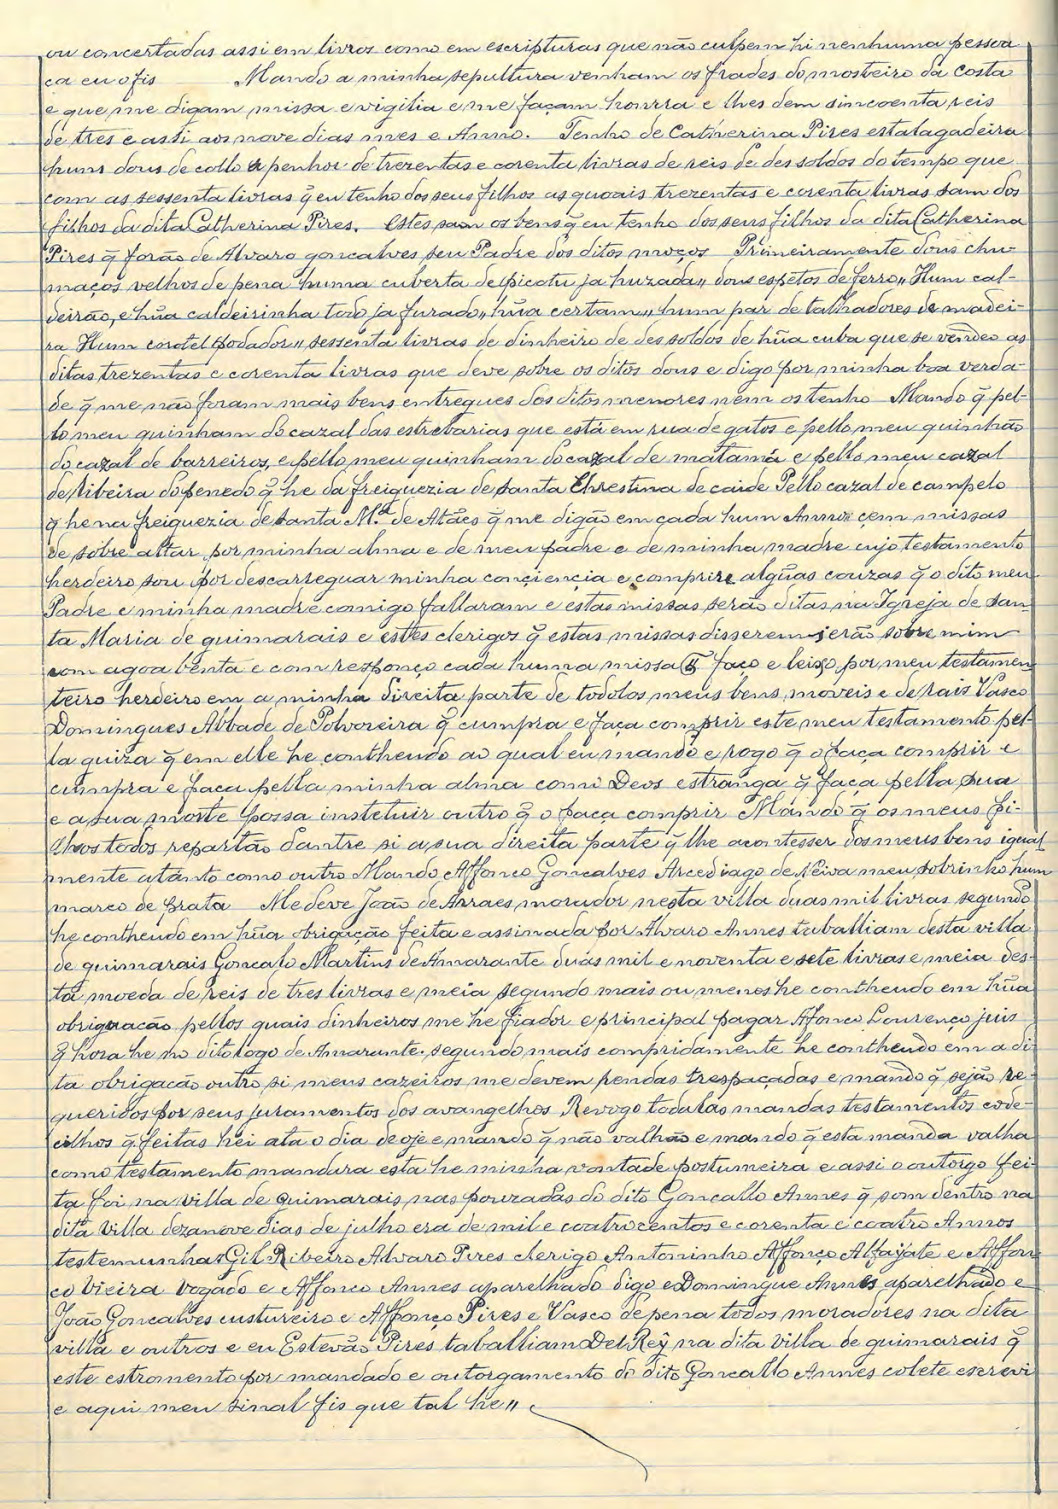 ou concertadas assi em livros como em escripturas que não culpem hi nenhuma pessoa
ca eu o fis Mando a minha sepultura venham os frades do mosteiro da Costa
e que me digam missa e vigilia e me façam honrra e lhes dem sincoenta reis
de tres e assi aos nove dias mes e Anno. Tenho de Catherina Pires estalagadeira
huns dous de collo a penhor de trezentas e corenta livras de reis de des soldos do tempo que
com as sessenta livras q̃ eu tenho dos seus filhos as quoais trezentas e corenta livras sam dos
filhos da dita Catherina Pires. Estes sam os bens q̃ eu tenho dos seus filhos da dita Catherina
Pires q̃ forão de Alvaro goncalves seu Padre dos ditos moços Primeiramente dous chu-
maços velhos de pena huma cuberta de picotu ja huzada,, dous espetos de ferro,, Hum cal-
deirão, e hũa caldeirinha todo ja furado,, hũa certam,, hum par de talhadores de madei-
ra Hum corotel podador,, sessenta livras de dinheiro de des soldos de hũa cuba que se vendeo as
ditas trezentas e corenta livras que deve sobre os ditos dous e digo por minha boa verda-
de q̃ me não foram mais bens entregues dos ditos menores nem os tenho Mando q̃ pel-
lo meu quinham do cazal das estrebarias que está em rua de gatos e pello meu quinhão
do cazal de barreiros, e pello meu quinham do cazal de matamá e pello meu cazal
de ribeira do penedo q̃ he da freiguezia de santa Chrestina de caide Pello cazal de campelo
q̃ he na freiguezia de santa M.ª de Atães q̃ me digão em cada hum Anno çem missas
de sobre altar por minha alma e de meu padre e de minha madre cujo testamento
herdeiro sou por descarreguar minha conçiençia e comprir algũas couzas q̃ o dito meu
Padre e minha madre comigo fallaram e estas missas serão ditas na Igreja de san-
ta Maria de guimarais e estes clerigos q̃ estas missas disserem jerão sobre mim
com agoa benta e com responço cada huma missa faço e leixo por meu testamen
teiro herdeiro em a minha direita parte de todolos meus bens moveis e de rais Vasco
Domingues Abbade de Polvoreira q̃ cumpra e faça comprir este meu testamento pel-
la guiza q̃ em elle he contheudo ao qual eu mando e rogo q̃ o faça comprir e
cumpra e faca pella minha alma como Deos estranga q̃ faça pella sua
e a sua morte possa instetuir outro q̃ o faça comprir Mando q̃ os meus fi-
lhos todos repartão dantre si a sua direita parte q̃ lhe acontesser dos meus bens igual
mente atanto como outro Mando Affonco Goncalves Arcediago de Neiva meu sobrinho hum
marco de prata Me deve João de Arraes morador nesta villa duas mil livras segundo
he contheudo em hũa obrigação feita e assinada por Alvaro Annes taballiam desta villa
de guimarais Goncalo Martins de Amarante duas mil e noventa e sete livras e meia des-
ta moeda de reis de tres livras e meia segundo mais ou menos he contheudo em hũa
obriguacão pellos quais dinheiros me he fiador e principal pagar Afonco Lourenço juis
q̃ hora he no dito logo de Amarante segundo mais compridamente he contheudo em a di-
ta obrigacão outro si meus cazeiros me devem rendas trespaçadas e mando q̃ sejão re-
queridos por seus juramentos dos avangelhos Revogo todalas mandas testamentos code-
cilhos q̃ feitas hei ata o dia de oje e mando q̃ não valhão e mando q̃ esta manda valha
como testamento mandura esta he minha vontade postumeira e assi o outorgo fei-
ta foi na villa de Guimarais nas pouzadas do dito Goncallo Annes q̃ som dentro na
dita villa dezanove dias de julho era de mil e coatrocentos e corenta e coatro Annos
testemunhas Gil Ribeiro Alvaro Pires clerigo Antoninho Affonço Alfajate e Affon
co Vieira vogado e Affonco Annes aparelhado digo e Domingue Annes aparelhado e
João Goncalves custureiro e Affonço Pires e Vasco de pena todos moradores na dita
villa e outros e eu Estevão Pires taballiam Del Rey na dita villa de guimarais q̃
este estromento por mandado e outorgamento do dito Goncallo Annes colete escrevi
e aqui meu sinal fis que tal he,,